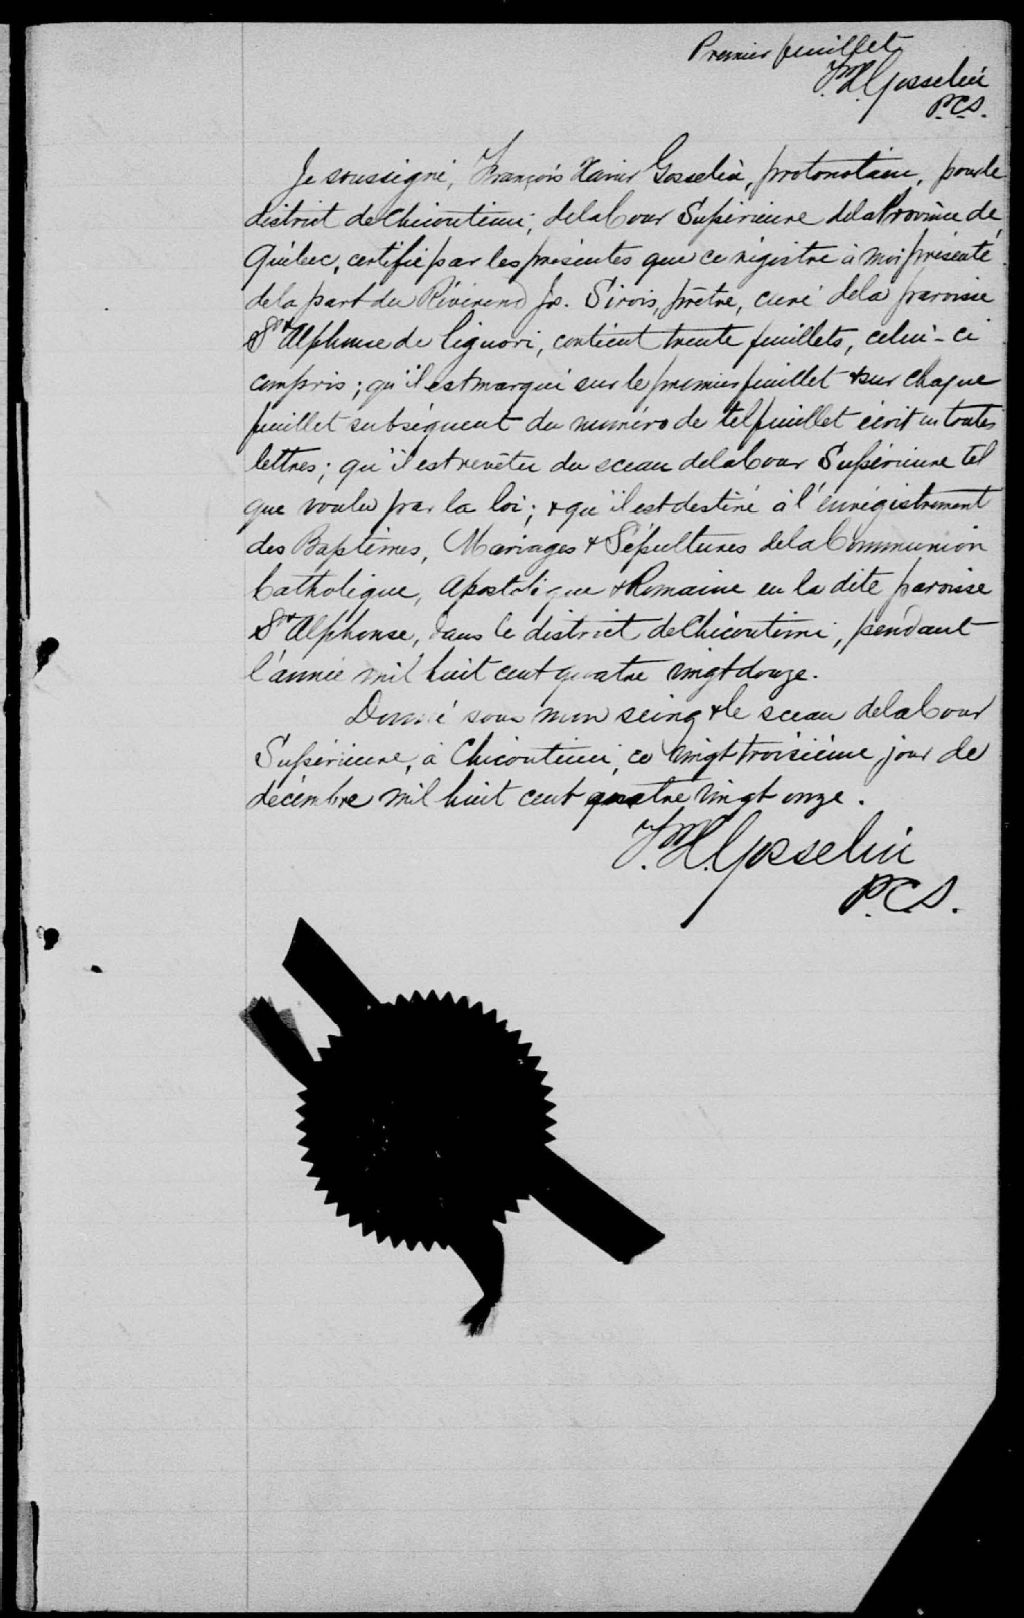 Premier feuillet
F. X. Gosselin
P.C.S.
Je soussigné, François Xavier Gosselin, protonotaire, pour le
district de Chicoutimi, de la Cour Supérieure de la Province de
Québec, certifie par les présentes que ce régistre à moi présenté
de la part du Révérend Js. Sirois, prêtre, curé de la paroisse
St Alphonse de Liguori, contient trente feuillets, celui-ci
compris; qu'il est marqué sur le premier feuillet & sur chaque
feuillet subséquent du numéro de tel feuillet écrit en toutes
lettres; qu'il est revêtu du sceau de la Cour Supérieure tel
que voulu par la loi; & qu'il est destiné à l'enrégistrement
des Baptêmes, Mariages & Sépultures de la Communion
Catholique, Apostolique & Romaine en la dite paroisse
St Alphonse, dans le district de Chicoutimi, pendant
l'année mil huit cent quatre vingt douze.
Donné sous mon seing & le sceau de la Cour
Supérieure, à Chicoutimi, ce vingt troisième jour de
décembre mil huit cent quatre vingt onze.
F. X. Gosselin
P.C.S.